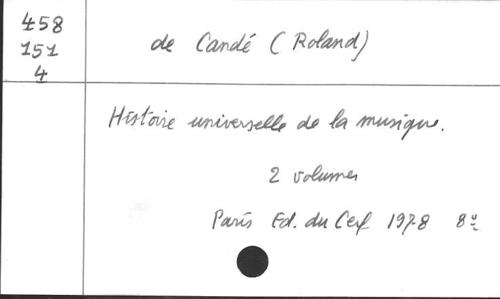 458
151
4
de Candé (Roland)
Histoire universelle de la musique.
2 volumes
Paris Ed. du Cerf 1978 8º